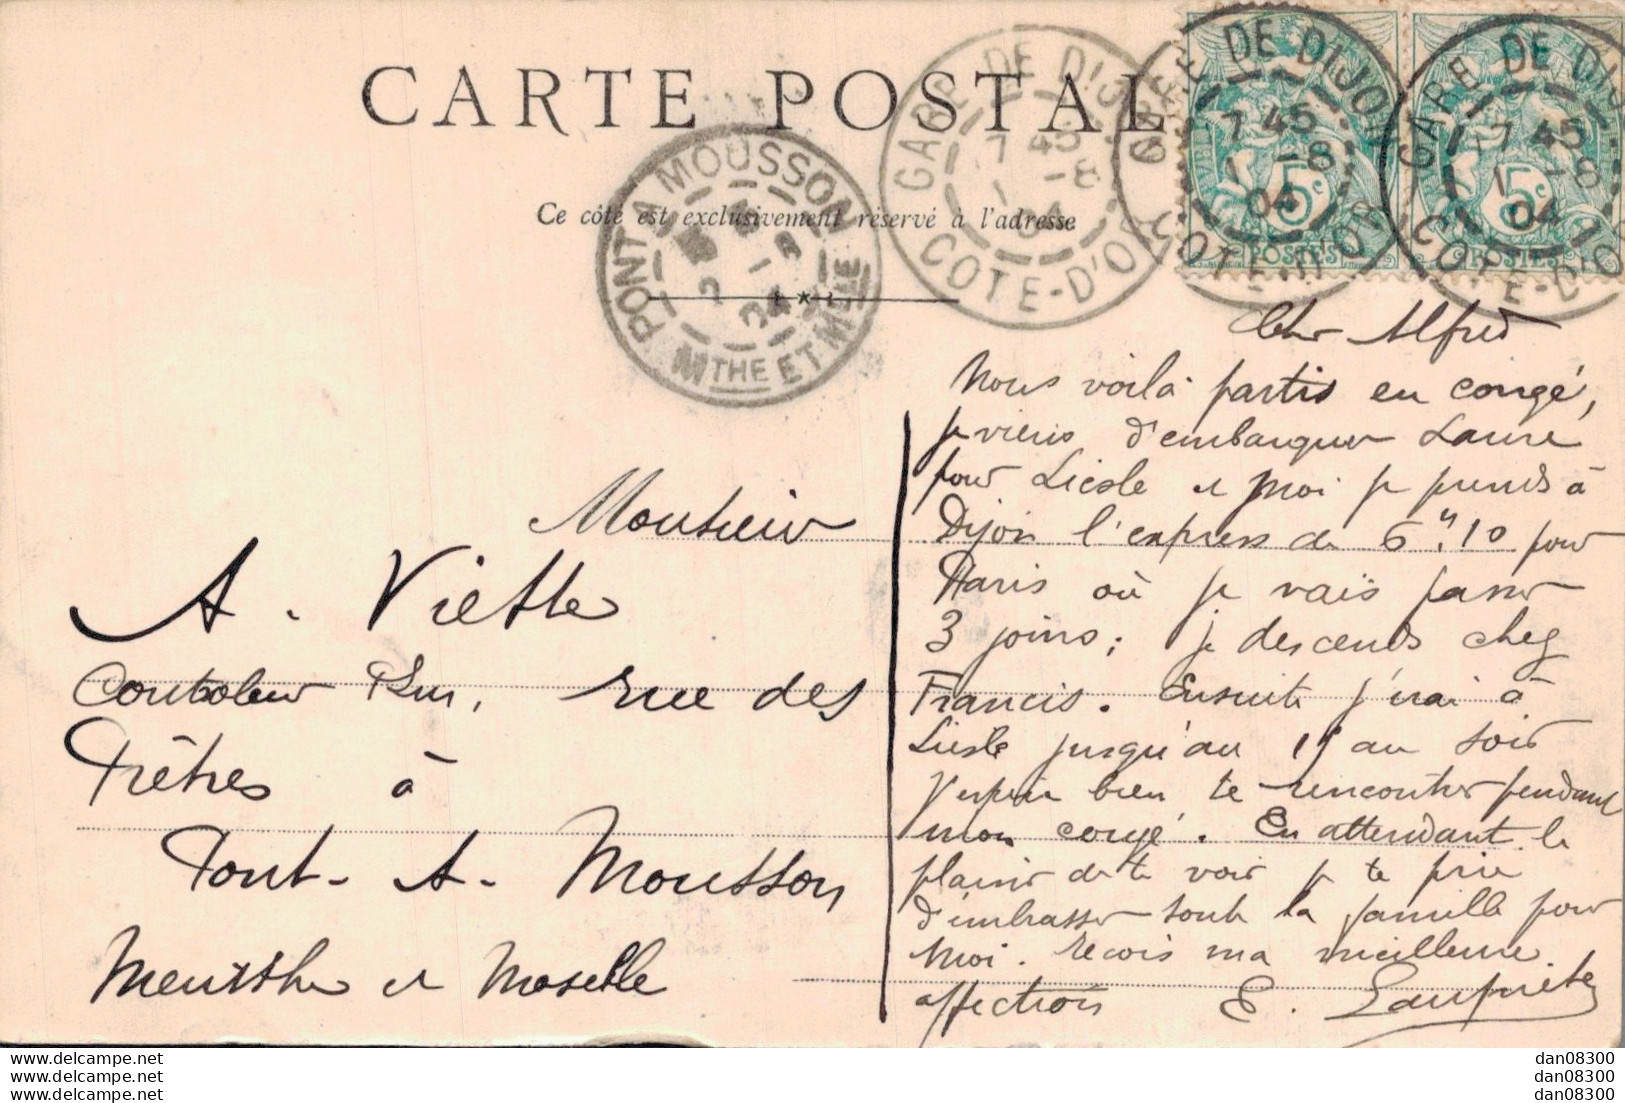 CARTE POSTALE
Ce côté est exclusivement réservé à l'adresse
PONT A MOUSSON
MTHE ET MLLE
GARE DE DIJON
7 45
1 -8
04
COTE-D'OR
GARE DE DIJON
7 45
1 -8
04
COTE-D'OR
GARE DE DIJ
7 45
1 -8
04
COTE-D'O
5c
POSTES
5c
POSTES
Cher Alfred
Nous voilà partis en congé,
je viens d'embarquer Laure
pour Liesle et moi je prends à
Dijon l'express de 6h10 pour
Paris où je vais passer
3 jours; je descends chez
Francis. Ensuite j'irai à
Liesle jusqu'au 15 au soir
J'espère bien te rencontrer pendant
mon congé. En attendant le
plaisir de te voir je te prie
d'embrasser toute la famille pour
moi. Reçois ma meilleure
affection E.
Monsieur
A. Viette
Controleur Rue des
Prêtres à
Pont-A-Mousson
Meurthe et Moselle
delcampe.net
delcampe.net
delcampe.net
dan08300
dan08300
dan08300